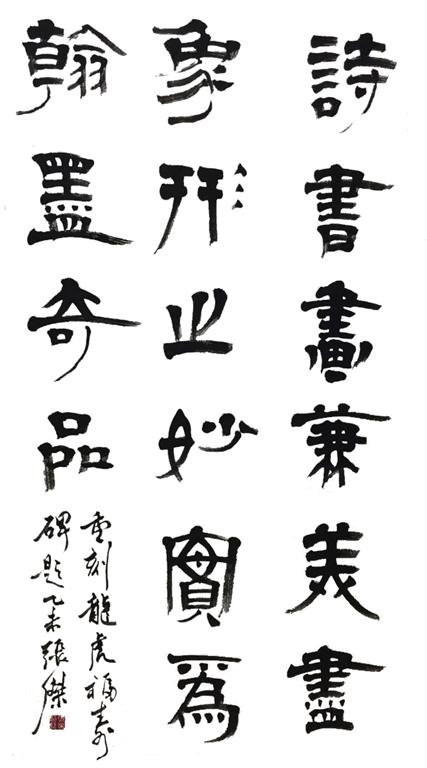 詩書畫兼美盡
象形之妙實為
翰墨奇品
重刻龍虎福壽
碑題乙未張傑